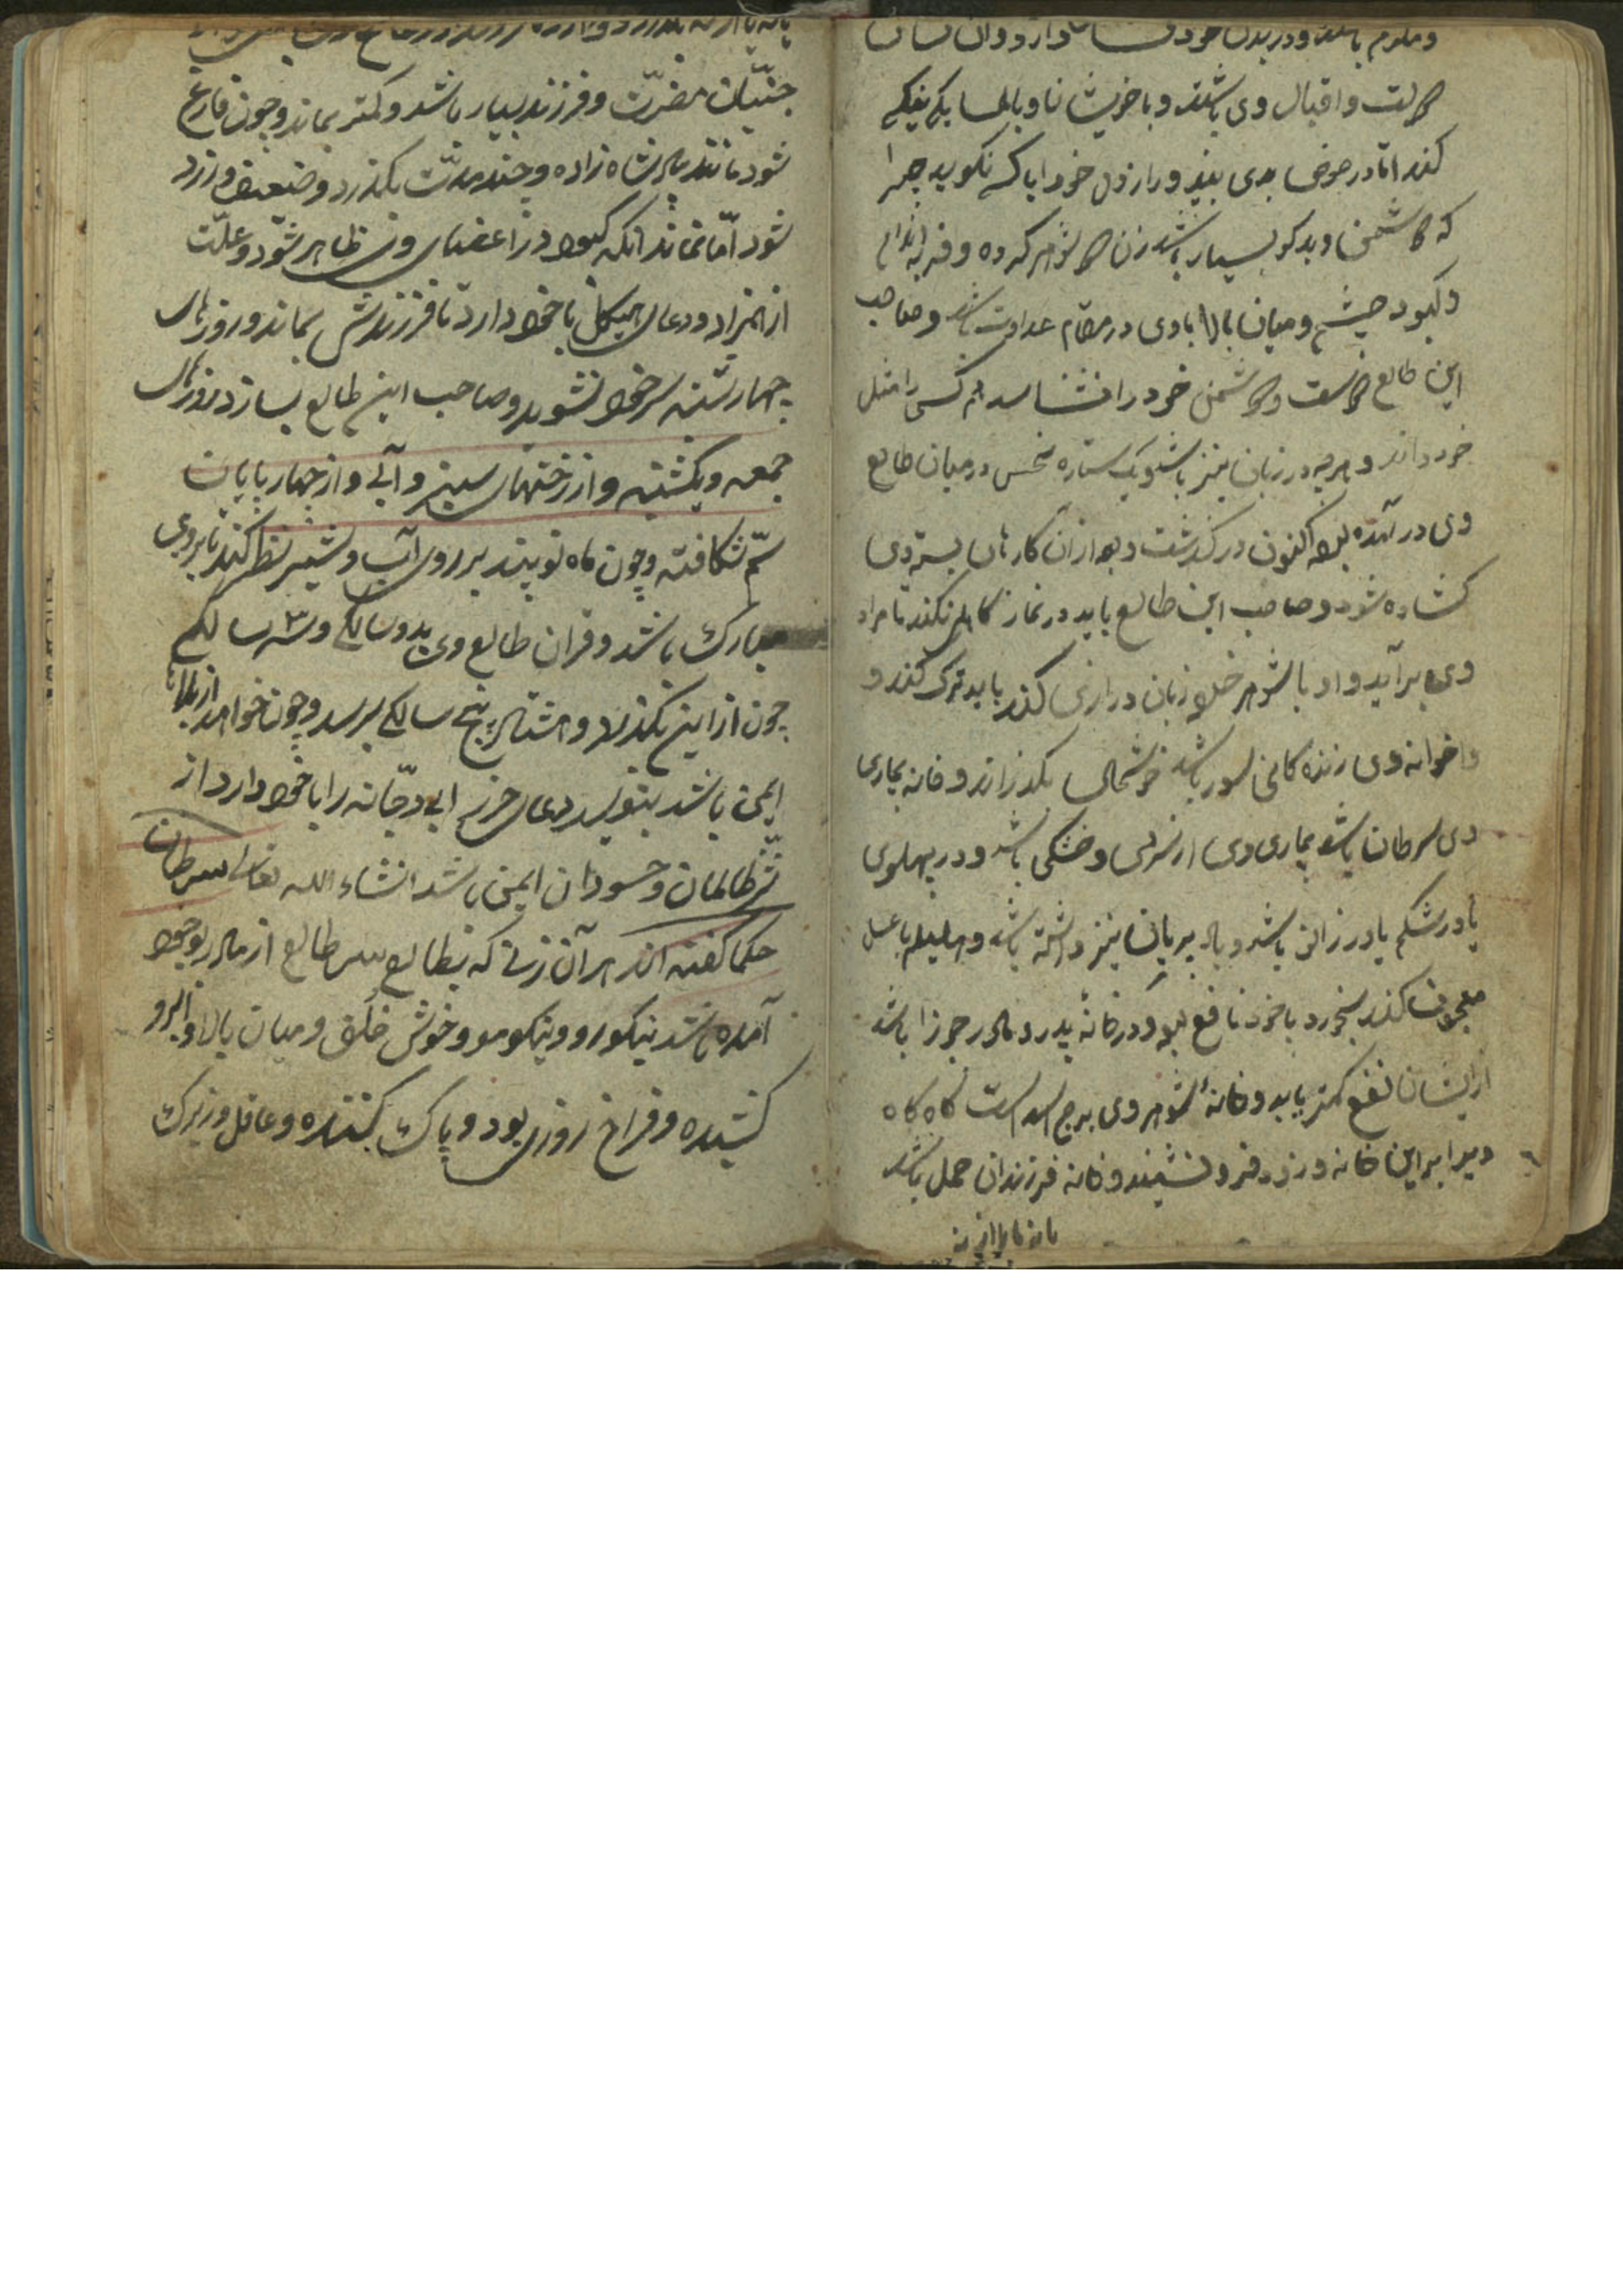 و ملازم باشند و در بدن خود نشانها دارد و آن نشان
دولت و اقبال وی باشند و با خویشان و با همسایگی نیکی
کند اما در عوض بدی بیند و راز دل خود با کس نگوید چرا
که دشمن و بدگو بسیار باشد زن دو شوهر کرده و فربه اندام
و کبود چشم و میان بالا با وی در مقام عداوت باشد و صاحب
این طالع دوست و دشمن خود را نشناسد هم کسی را مثل
خود داند و هرچه در زبان نیز باشد و یک ستاره نحس در میان طالع
وی در آمده بود اکنون در گذشت و بعد از آن کارهای بسته وی
گشاده شود و صاحب این طالع باید در نماز کاهلی نکند تا مراد
وی برآید و او با شوهر خود زبان درازی کند باید ترک کند و
خوشحال بگذراند و خانه بیماری
وی سرطان باشد بیماری وی از سردی و خشکی باشد و در پهلوی
یا در شکم یا در زانو باشد و باد بریان نیز داشته باشد و هلیله با عسل
معجون کند بخورد با خود نافع بود و در خانه پدر و مادر جوزا باشد
از ایشان نفع کمتر یابد و خانهٔ شوهر وی برج اسد است گاه گاه
در برابر این خانه و زود فرو نشیند و خانه فرزندان حمل باشد

جنیّان مضرّت و فرزند بسیار باشد و کمتر بماند و چون فارغ
شود مانند مادر شاه زاده و چند مدّت بگذرد و ضعیف و زرد
شود امّا نماند آنکه کبود در اعضای وی ظاهر شود و علّت
از همزاد و دعای هیکل با خود دارد تا فرزندش بماند و روزهای
چهارشنبه سر خود نشوید و صاحب این طالع بسازد روزهای
جمعه و یکشنبه و از رختهای سبز و آبی و از چهار پایان
سم شکافته و چون ماه نو بیند بر روی آب و شمشیر نظر کند تا بروی
مبارک باشد و قران طالع وی بدو سالگی و ۳ سه سالگی
چون از این بگذرد و هشتاد پنج سالگی برسد و چون خواهد از بلاها
ایمن باشد بنویسد دعای حرز ابی دجّانه را با خود دارد از
شرّ ظالمان و حسودان ایمن باشد انشاء الله تعالی سرطان
حکما گفته اند هر آن زنی که بطالع سرطالع از مادر بوجود
آمده باشد نیکو رو و نیکو مو و خوش خلق و میان بالا و ابرو
کشیده و فراخ روزی بود و پاک کننده و عاقل و زیرک